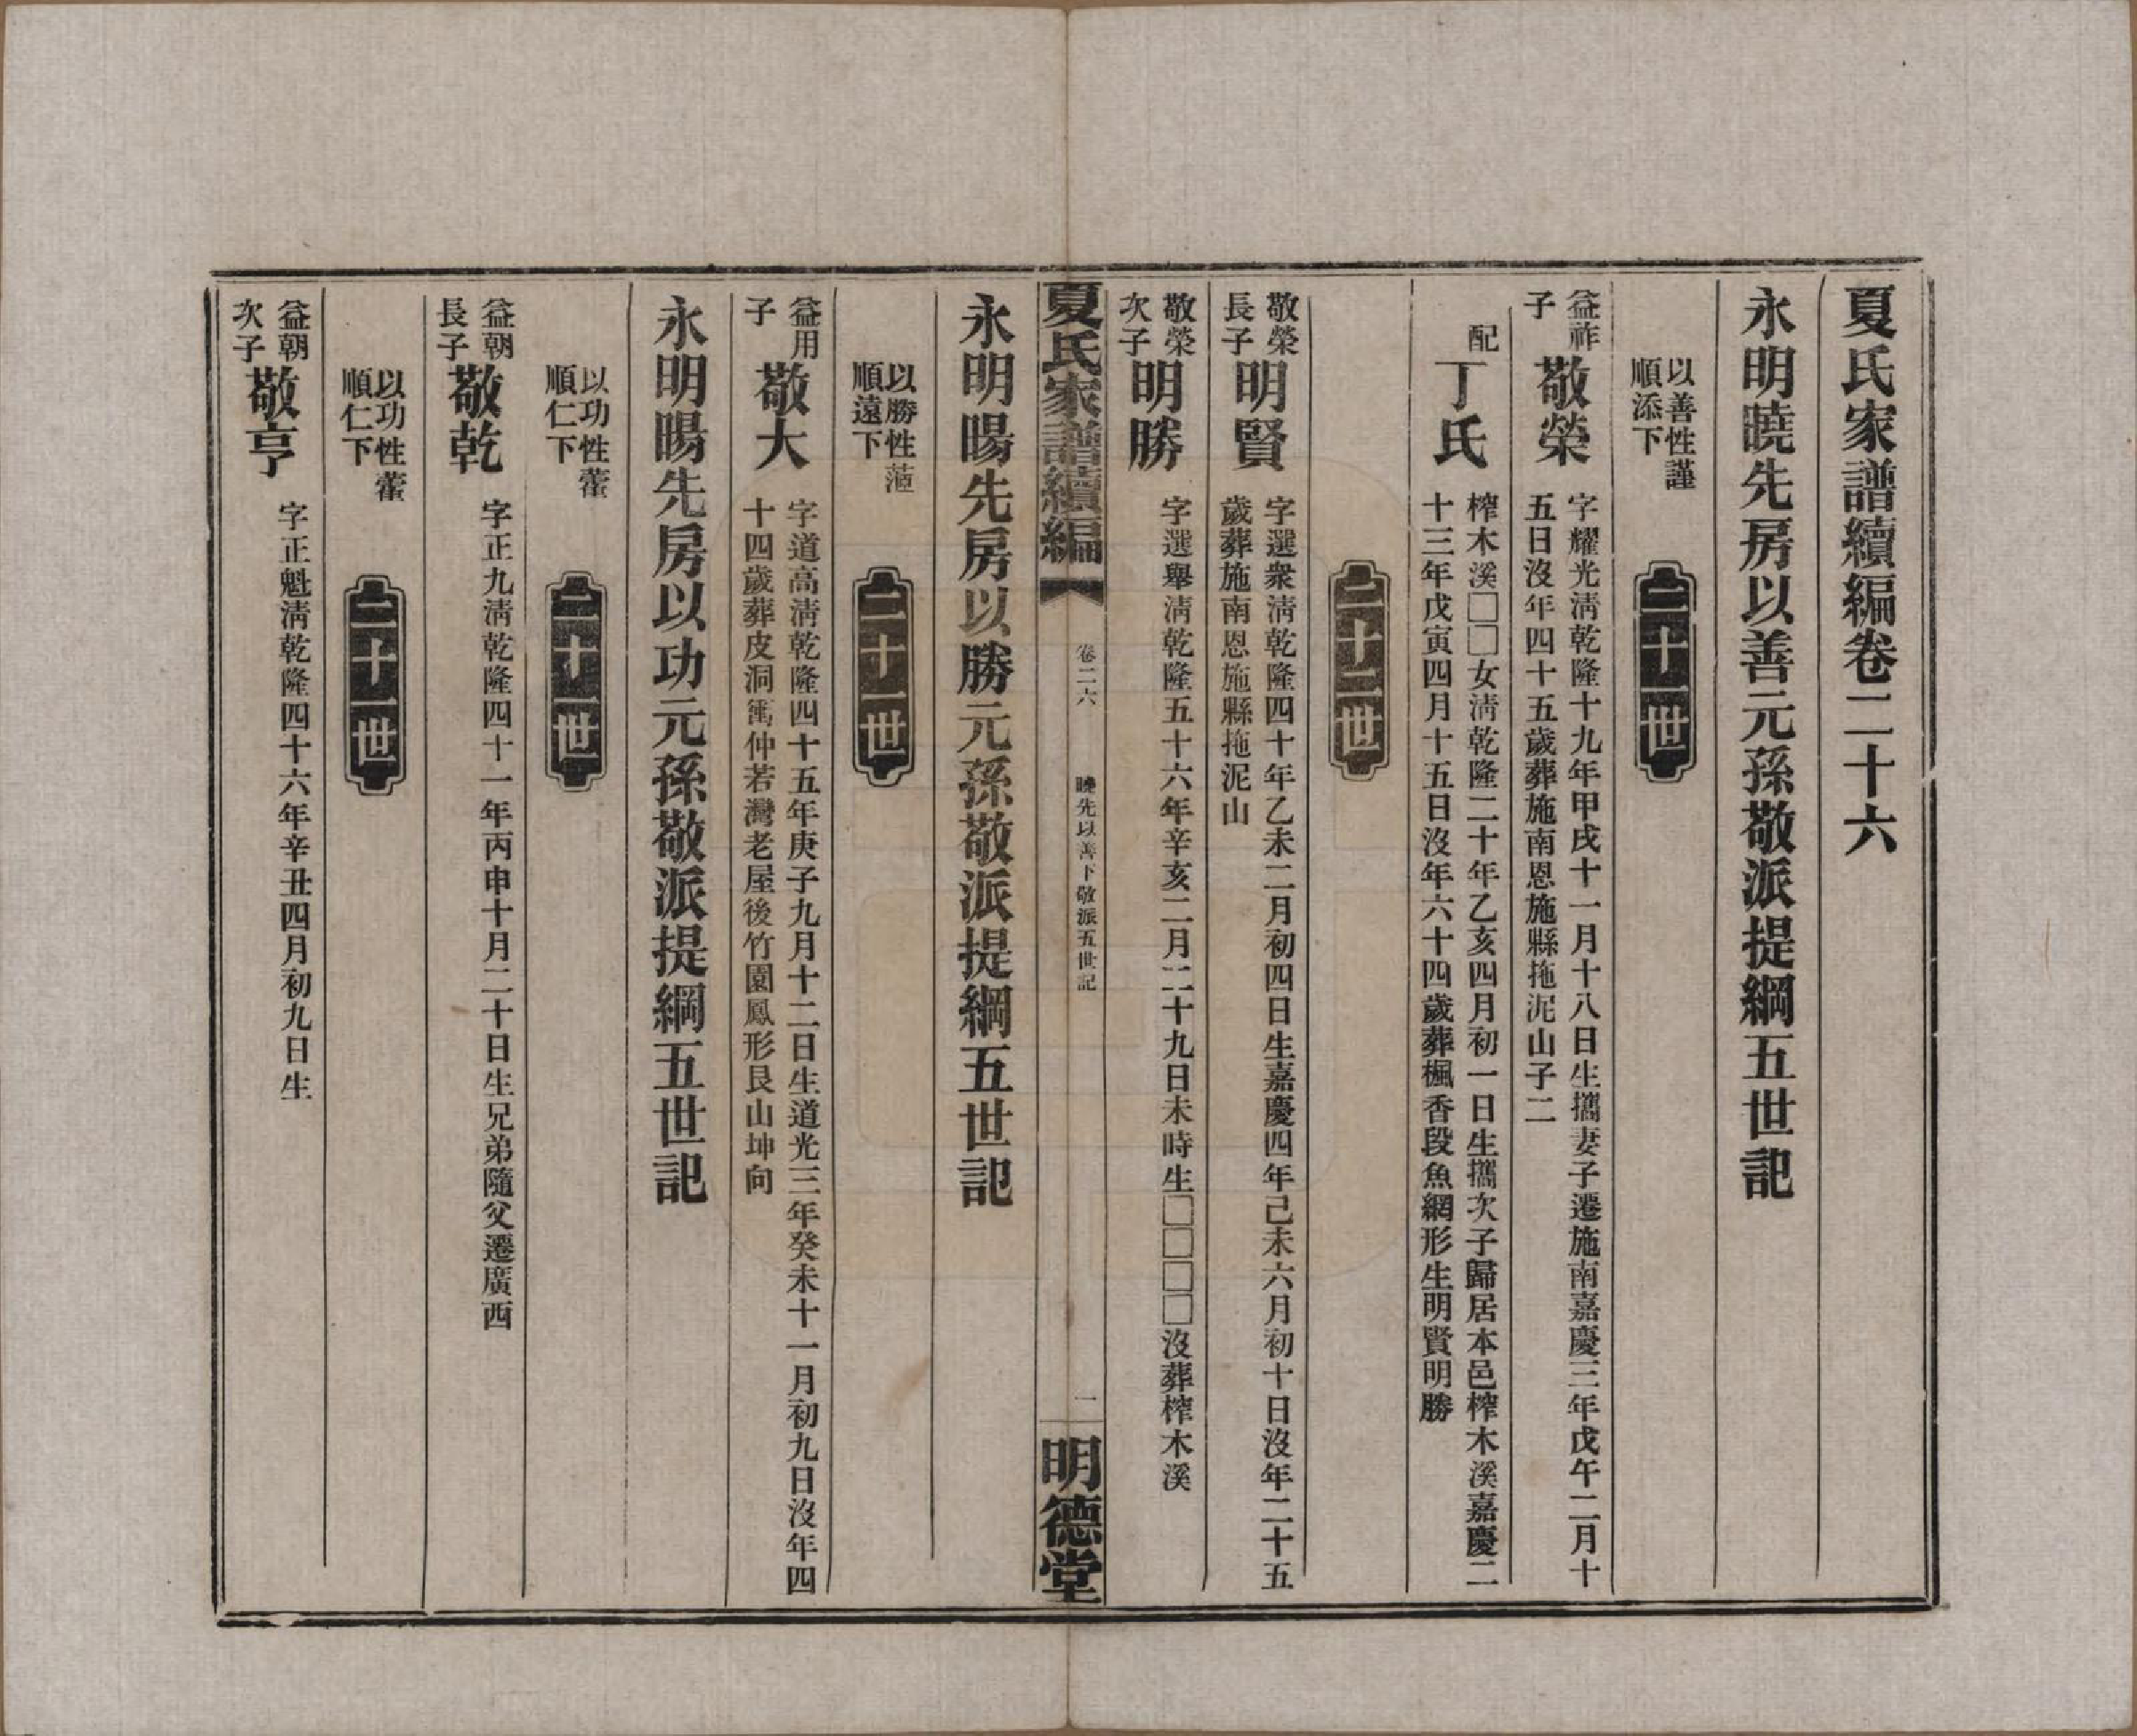 夏氏家譜續編卷二十六
永明曉先房以善元孫敬派提綱五世記
以善性謹
順添下
二十一世
益祚
子
敬榮
字耀光淸乾隆十九年甲戌十一月十八日生攜妻子遷施南嘉慶三年戊午二月十
五日沒年四十五歲葬施南恩施縣拖泥山子二
配
丁氏
榨木溪□□女淸乾隆二十年乙亥四月初一日生攜次子歸居本邑榨木溪嘉慶二
十三年戊寅四月十五日沒年六十四歲葬楓香段魚網形生明賢明勝
二十二世
敬榮
長子
明賢
字選衆淸乾隆四十年乙未二月初四日生嘉慶四年己未六月初十日沒年二十五
歲葬施南恩施縣拖泥山
敬榮
次子
明勝
字選舉淸乾隆五十六年辛亥二月二十九日未時生□□□□沒葬榨木溪
夏氏家譜續編
卷二六
曉先以善下敬派五世記
一
明德堂
永明暘先房以勝元孫敬派提綱五世記
以勝性
順遠下
二十一世
益用
子
敬大
字道高淸乾隆四十五年庚子九月十二日生道光三年癸未十一月初九日沒年四
十四歲葬皮洞衝仲若灣老屋後竹園鳳形艮山坤向
永明暘先房以功元孫敬派提綱五世記
以功性藿
順仁下
二十一世
益朝
長子
敬乾
字正九淸乾隆四十一年丙申十月二十日生兄弟隨父遷廣西
以功性藿
順仁下
二十一世
益朝
次子
敬亨
字正魁淸乾隆四十六年辛丑四月初九日生